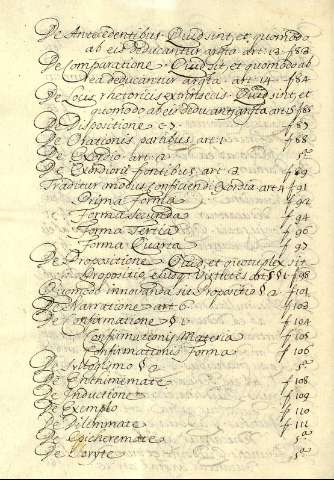 De Antecedentibus Quid sint, et quomodo
ab eis deducantur argta art 13 f 83
De Comparatione Quid sit, et quomodo ab
ea deducantur argta art 14 f 84
De Locis rhetoricis extrinsecis Quid sint, et
quomodo ab eis deducant argta art 15 f 85
De Dispositione f 87
De Orationis partibus art 1 f 88
De Exordio art 2
De Exordiorum fontibus art 3 f 89
Traditur modus conficiendi Exordia art 4 f 91
Prima Forma f 92
Forma Secunda f 94
Forma Tertia f 96
Forma Quarta f 97
De Propositione Quid et quotuplex sit
Propositio art 5 § 1 f 98
Quomodo innovanda sit Propositio § 2 f 101
De Narratione art 6 f 103
De Confirmatione § 1 f 104
Confirmationis Materia f 105
Confirmationis Forma f 106
De Syllogismo § 2
De Enthimemate f 108
De Inductione f 109
De Exemplo f 110
De Dilemmate f 111
De Epicheremate
De Soryte